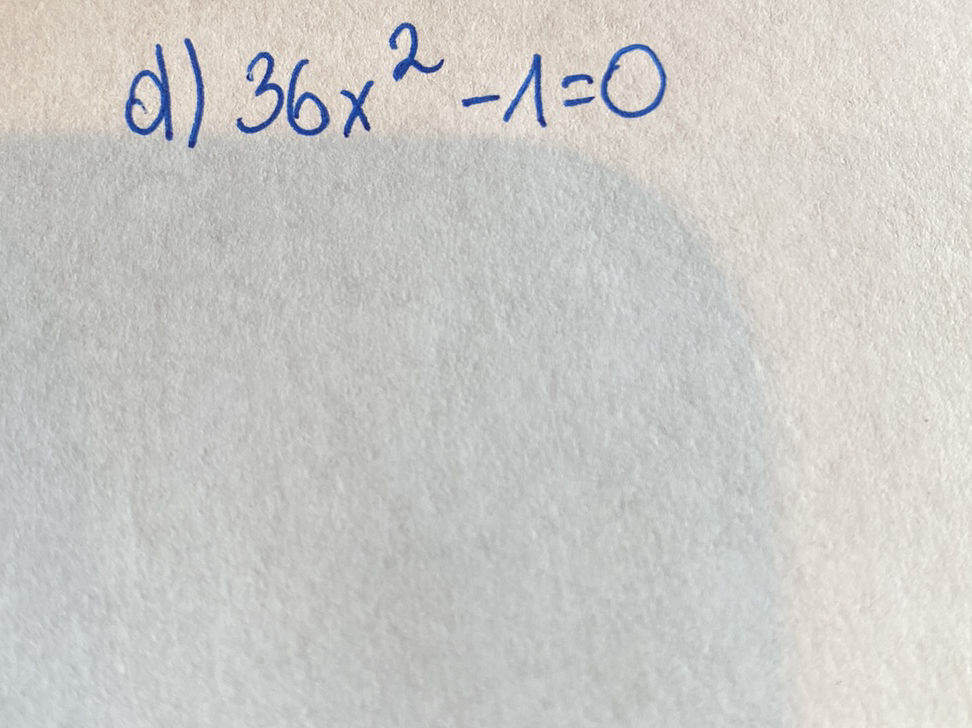 d) 36x² -1=0